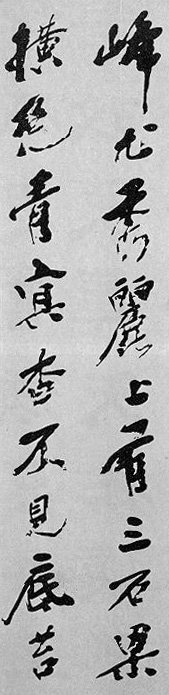 峰尤秀麗上有三石梁
橫絕青冥杳不見底苔